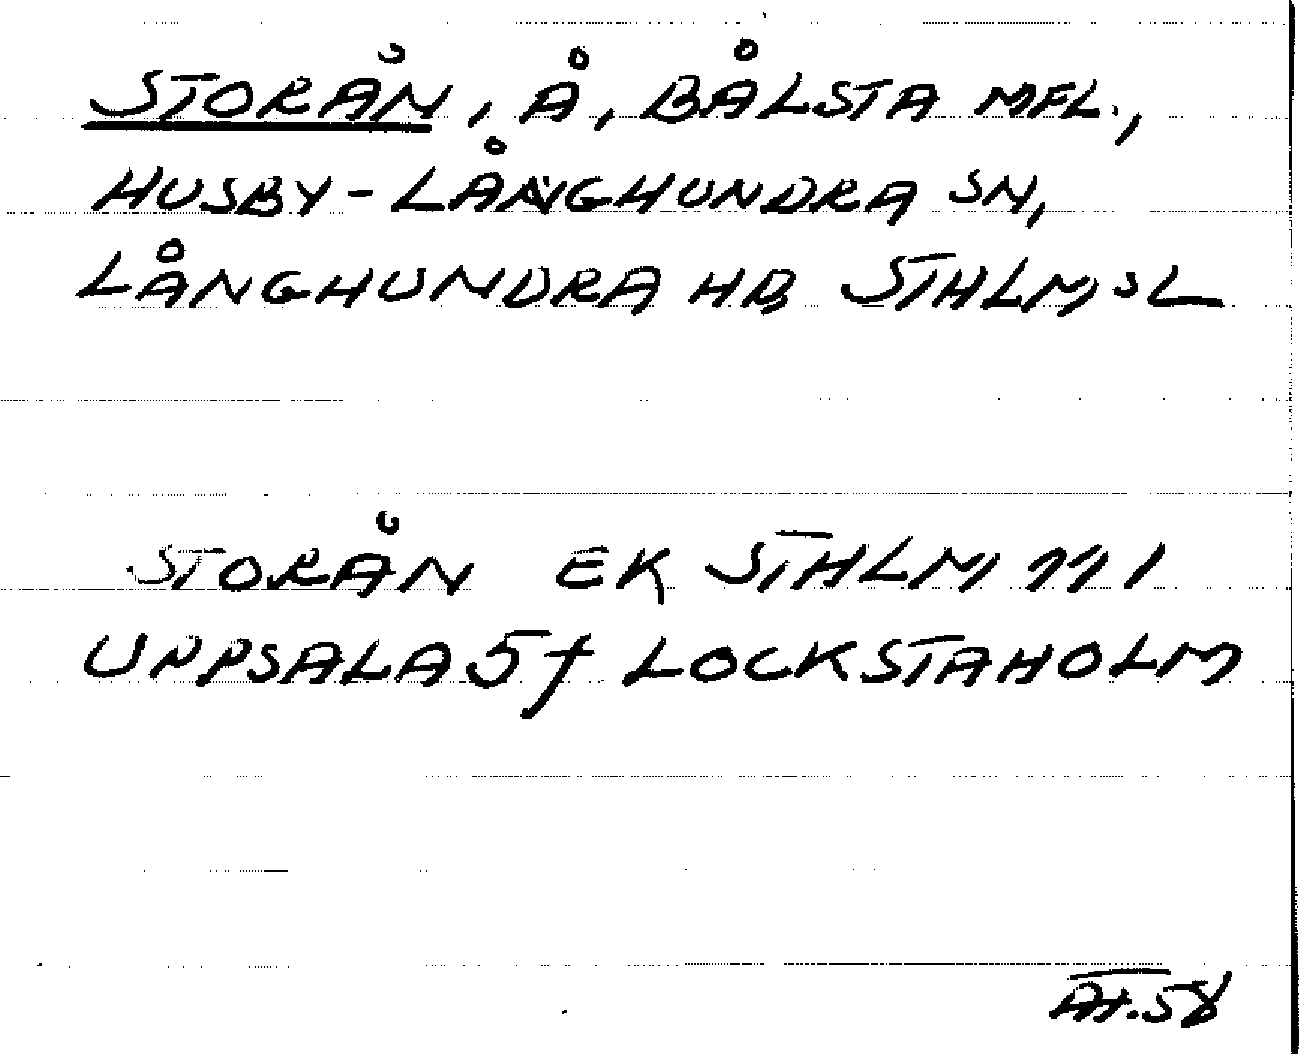 STORÅN, Å, BÅLSTA MFL.,
HUSBY-LÅNGHUNDRA SN,
LÅNGHUNDRA HD STHLMSL
STORÅN EK STHLM 111
UPPSALA 5f LOCKSTAHOLM